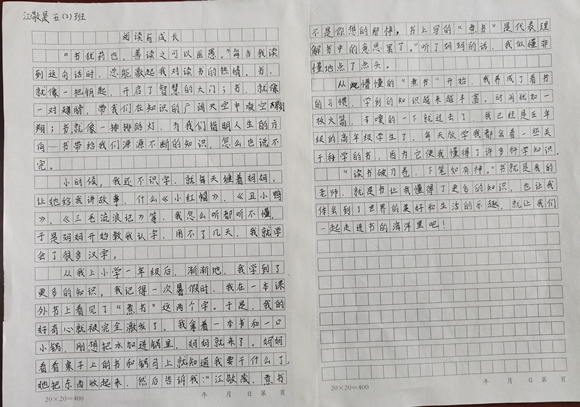 江歌晟 五(3)班
阅读与成长
"书犹药也,善读之可以医愚。"每当我读
到这句话时,总能激起我对读书的热情。书,
就像一把钥匙,开启了智慧的大门;书,就像
一对翅膀,带我们在知识的广阔天空中凌空翱
翔;书就像一排排路灯,为我们指明人生的方
向…书带给我们源源不断的知识,怎么也说不
完。
小时候,我还不识字,就每天缠着妈妈,
让她给我讲故事,什么《小红帽》、《丑小鸭
》、《三毛流浪记》等,我怎么听都听不懂,
于是妈妈开始教我认字,用不了几天,我就学
会了很多汉字。
从我上小学一年级后,渐渐地,我学到了
更多的知识。我记得一次暑假时,我在一本课
外书上看见了"煮书"这两个字。于是,我的
好奇心就被完全激发了,我拿着一本书和一口
小锅,刚想把水加进锅里,妈妈就来了。妈妈
看看桌子上的书和锅马上就知道我要干什么了,
她把东西收起来,然后告诉我:"江歌晟,煮书
20×20=400 年 月 日 第 页
不是你想的那样,书上写的"煮书"是代表理
解书中的意思罢了。"听了妈妈的话,我似懂非
懂地点了点头。
从此懵懂的"煮书"开始,我养成了看书
的习惯,学到的知识越来越丰富。时间犹如一
放火箭,卡嗖的一下就过去了,我已经是五年
级的高年级学生了,每天放学我都会看一些关
于科学的书,因为它使我懂得了许多科学知识。
"读书破万卷,下笔如有神。"书就是我的
老师,就是书让我懂得了更多的知识,也让我
体会到了世界的美好和生活的乐趣,就让我们
一起走进书的海洋里吧!
20×20=400 年 月 日 第 页